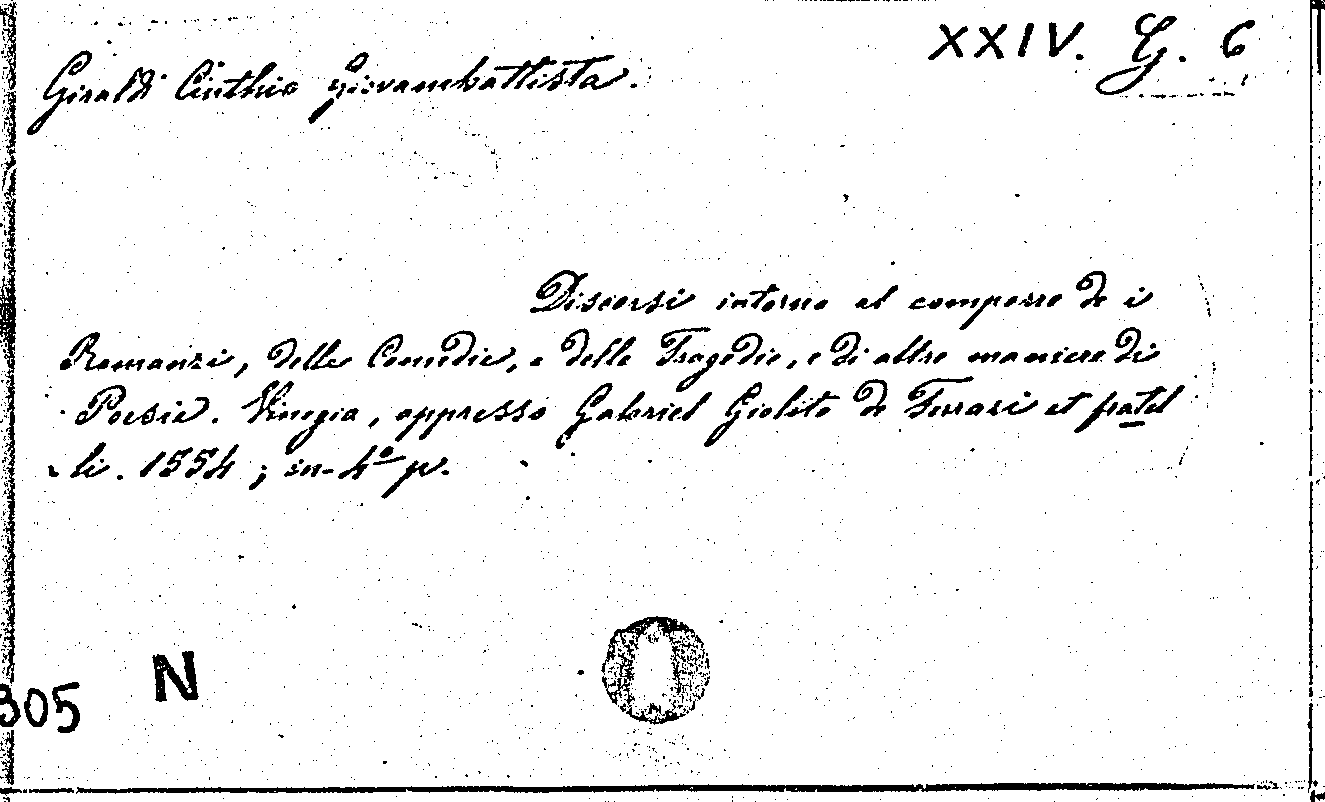 XXIV. G. 6
Giraldi Cinthio Giovambattista.
Discorsi intorno al comporre de i
Romanzi, delle Comedie, e delle Tragedie, e di altre maniere di
Poesie. Vinegia, appresso Gabriel Giolito de Ferrari et fratel
li. 1554; in-4º p.
305 N